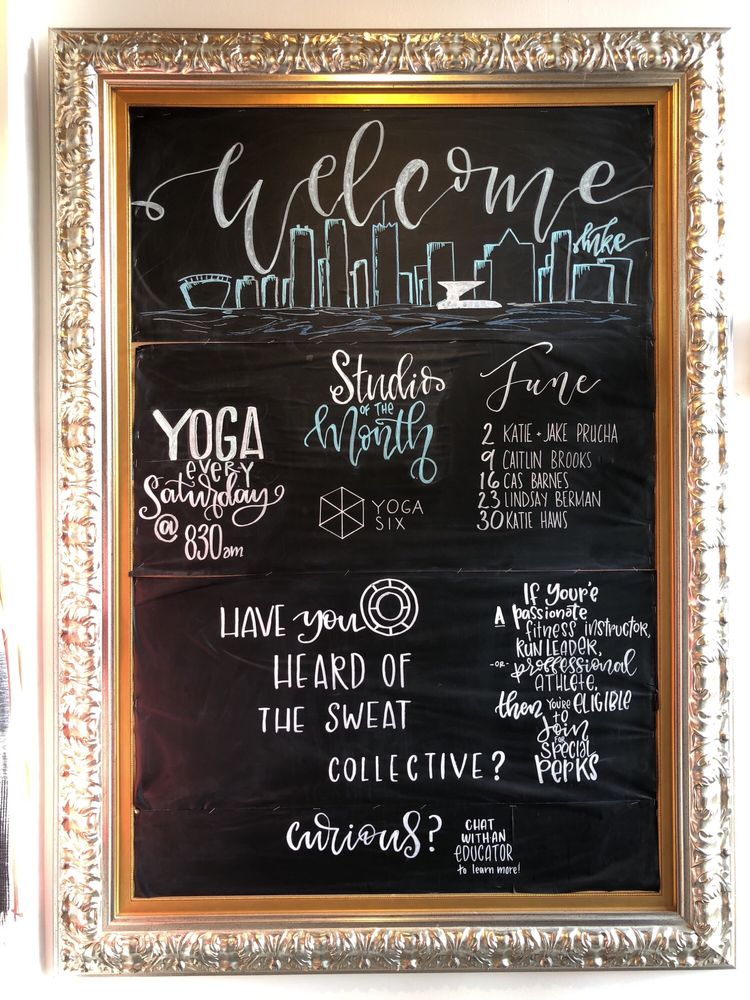 welcome
MKE
YOGA
EVERY
Saturday
@
830am
Studio
OF THE
Month
YOGA
SIX
June
2 KATIE + JAKE PRUCHA
9 CAITLIN BROOKS
16 CAS BARNES
23 LINDSAY BERMAN
30 KATIE HAWS
HAVE you
HEARD OF
THE SWEAT
COLLECTIVE?
If Your'e
A passionate
fitness instructor,
RUN LEADER,
-OR- proffessional
ATHLETE,
then YOU'RE ELIGIBLE
to
Join
FOR
SPECIAL
PERKS
curious?
CHAT
WITH AN
EDUCATOR
to learn more!